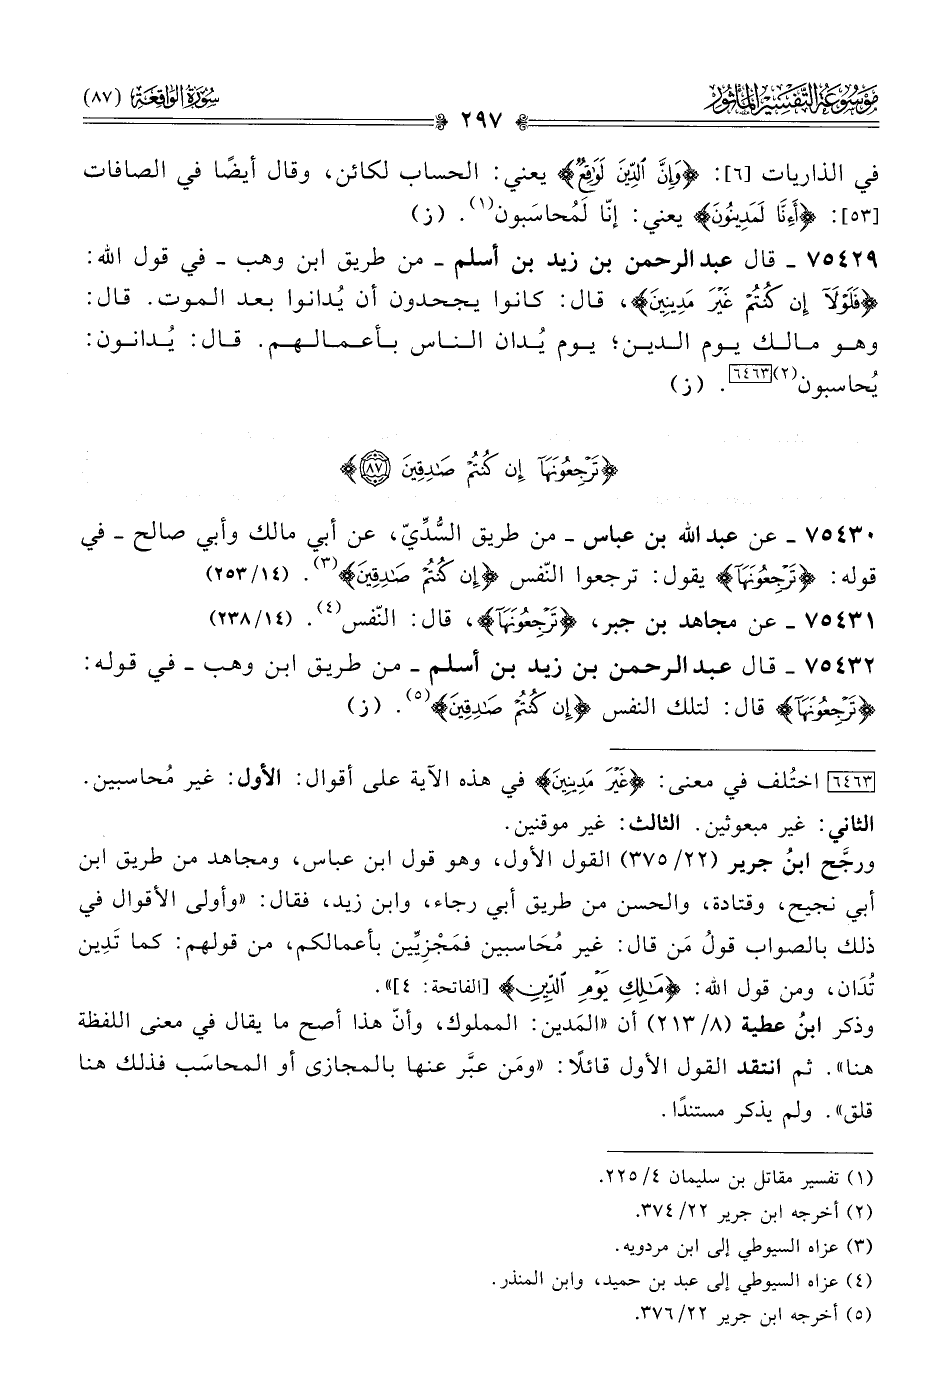 موسوعة التفسير المأثور
سورة الواقعة (٨٧)
٢٩٧
في الذاريات [٦]: ﴿وَإِنَّ ٱلدِّينَ لَوَٰقِعٌ﴾ يعني: الحساب لكائن، وقال أيضًا في الصافات
[٥٣]: ﴿أَءِنَّا لَمَدِينُونَ﴾ يعني: إنّا لَمُحاسَبون(١). (ز)
٧٥٤٢٩ ـ قال عبد الرحمن بن زيد بن أسلم ـ من طريق ابن وهب ـ في قول الله:
﴿فَلَوْلَآ إِن كُنتُمْ غَيْرَ مَدِينِينَ﴾، قال: كانوا يجحدون أن يُدانوا بعد الموت. قال:
وهو مالك يوم الدين؛ يوم يُدان الناس بأعمالهم. قال: يُدانون:
يُحاسبون(٢)[٦٤٦٣]. (ز)
﴿تَرْجِعُونَهَآ إِن كُنتُمْ صَٰدِقِينَ ٨٧﴾
٧٥٤٣٠ ـ عن عبد الله بن عباس ـ من طريق السُّدِّيّ، عن أبي مالك وأبي صالح ـ في
قوله: ﴿تَرْجِعُونَهَآ﴾ يقول: ترجعوا النّفس ﴿إِن كُنتُمْ صَٰدِقِينَ﴾(٣). (١٤/٢٥٣)
٧٥٤٣١ ـ عن مجاهد بن جبر، ﴿تَرْجِعُونَهَآ﴾، قال: النّفس(٤). (١٤/٢٣٨)
٧٥٤٣٢ ـ قال عبد الرحمن بن زيد بن أسلم ـ من طريق ابن وهب ـ في قوله:
﴿تَرْجِعُونَهَآ﴾ قال: لتلك النفس ﴿إِن كُنتُمْ صَٰدِقِينَ﴾(٥). (ز)
[٦٤٦٣] اختُلف في معنى: ﴿غَيْرَ مَدِينِينَ﴾ في هذه الآية على أقوال: الأول: غير مُحاسبين.
الثاني: غير مبعوثين. الثالث: غير موقنين.
ورجَّح ابنُ جرير (٢٢/٣٧٥) القول الأول، وهو قول ابن عباس، ومجاهد من طريق ابن
أبي نجيح، وقتادة، والحسن من طريق أبي رجاء، وابن زيد، فقال: «وأولى الأقوال في
ذلك بالصواب قولُ مَن قال: غير مُحَاسبين فمَجْزِيِّين بأعمالكم، من قولهم: كما تَدِين
تُدَان، ومن قول الله: ﴿مَٰلِكِ يَوْمِ ٱلدِّينِ﴾ [الفاتحة: ٤]».
وذكر ابنُ عطية (٨/٢١٣) أن «المَدين: المملوك، وأنّ هذا أصح ما يقال في معنى اللفظة
هنا». ثم انتقد القول الأول قائلًا: «ومَن عبَّر عنها بالمجازى أو المحاسَب فذلك هنا
قلق». ولم يذكر مستندًا.
(١) تفسير مقاتل بن سليمان ٤/٢٢٥.
(٢) أخرجه ابن جرير ٢٢/٣٧٤.
(٣) عزاه السيوطي إلى ابن مردويه.
(٤) عزاه السيوطي إلى عبد بن حميد، وابن المنذر.
(٥) أخرجه ابن جرير ٢٢/٣٧٦.